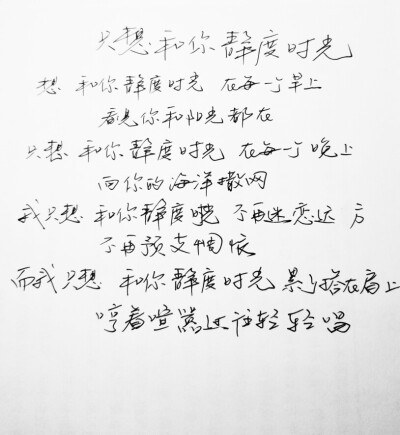 只想和你静度时光
想 和你静度时光 在每一个早上
看见你和阳光都在
只想 和你静度时光 在每一个晚上
向你的海洋撒网
我只想 和你静度 不再迷恋远方
不再预支惆怅
而我只想 和你静度时光 累了搭在肩上
哼着喧嚣过往轻轻唱